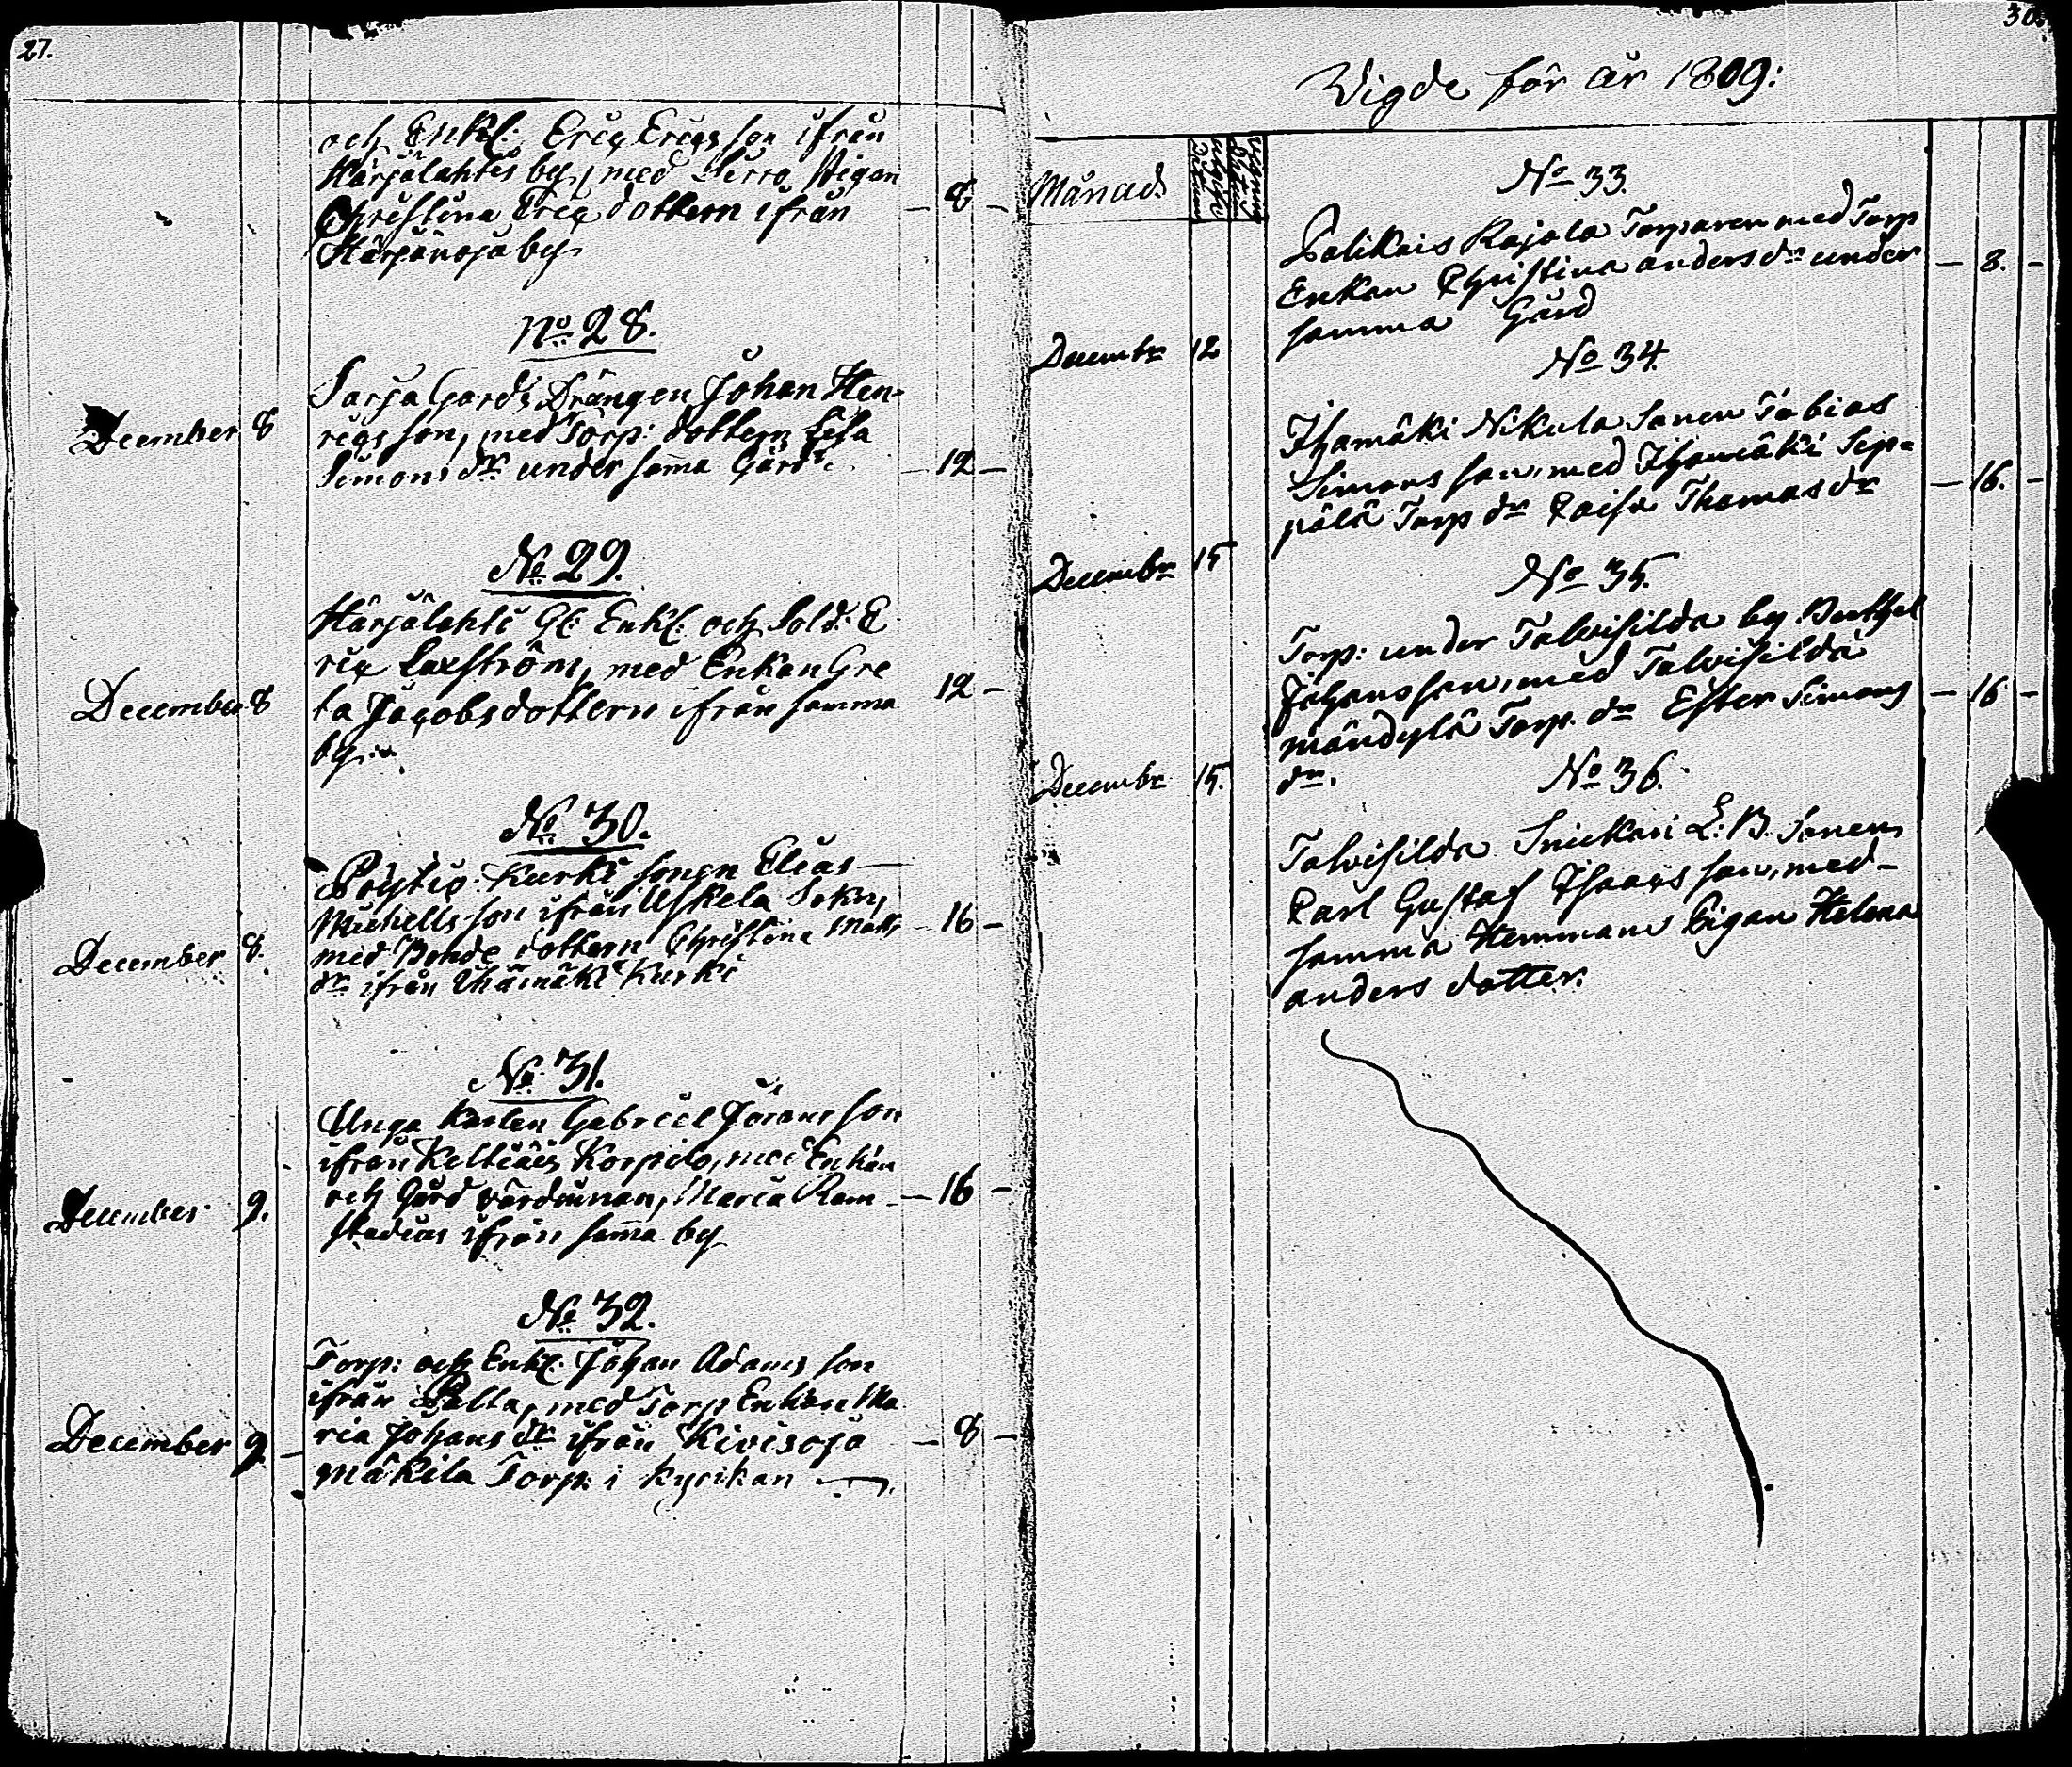 27.
och Enkl: Eric Ericsson ifrån
Härjälahti by, med Pigan
Christina Ericdottern ifrån — 8 —
Härjänoja by
No 28.
Sarja Gårds Drängen Johan Hen-
December 8 ricsson, med Torp: dottern Lisa
Simons dr under samma Gård — 12 —
No 29.
Härjälahti Enkl: och Sold: E
ric Laxström, med Enkan Gre
December 8 ta Jacobsdottern ifrån samma 12 —
by
No 30.
Pöytiö Kurki sonen Elias
Michellsson ifrån Uskela Sokn,
December 8. med Bonde dottern Christina Matts — 16 —
dr ifrån Ihämäki Kurki
No 31.
Unga Karlen Gabriel Jöransson
ifrån Keltiäis Korpilo, med Enkan
December 9. och Gård värdinnan, Maria Ram — 16 —
stadius ifrån samma by
No 32.
Torp: och Enkl: Johan Adamsson
ifrån med Torp Enkan Ma
December 9. ria Johans dr ifrån Kivisoja — 8 —
Mäkila Torp: i kyrikan
30.
Wigde för år 1809:
Månads
No 33.
Palikais Rajala Torparen med Torp
Enkan Christina anders dr under — 8. —
Decembr 12 samma Gård
No 34.
Ihamäki Nikula Sonen Tobias
Simons son, med Ihamäki Sep-
Decembr 15 pälä Torp dr Caisa Thomas dr — 16. —
No 35.
Torp: under Talvisilda by Berthel
Johansson, med Talvisilda
mändylä Torp. dr Ester Simons — 16 —
Decembr 15. dr.
No 36.
Talvisilda Snickari L: B. Sonen
Carl Gustaf Isaacs son, med
samma Hemmans Pigan Helena
anders dotter.